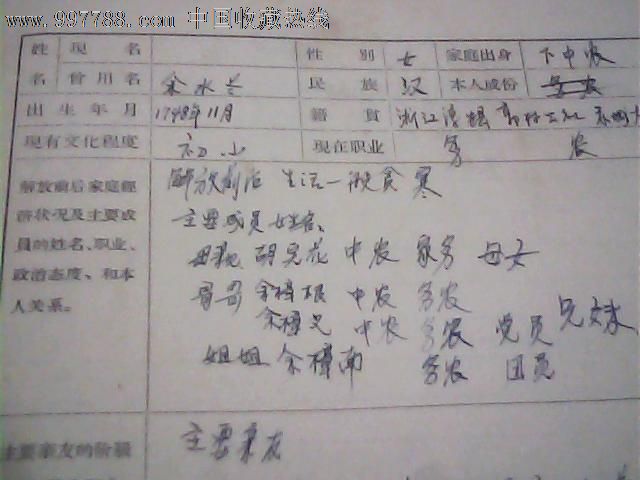 www.997788.com 中国收藏热线
姓 现 名 性 别 女 家庭出身 下中农
名 曾用名 余水兰 民 族 汉 本人成份 务农
出生年月 1948年11月 籍 貫 浙江
现有文化程度 初小 现在职业 务 农
解放前后家庭經 解放前后 生活一般 贫寒
濟状况及主要成 主要成员姓名、
員的姓名、职业、 母親 胡 花 中农 家务 母女
政治态度、和本 哥哥 余樟根 中农 务农
人关系。 余樟义 中农 务农 党员 兄妹
姐姐 余樟南 务农 团员
主要亲友的阶級 主要亲友